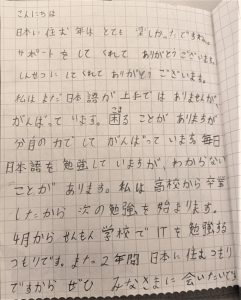 こんにちは
日本に住む年はとても楽しかったですね。
サポートをしてくれてありがとうございます。
しんせつにしてくれてありがとうございます。
私はまだ日本語が上手ではありませんが、
がんばっています。困ることがありますが
分月の力でしてがんばっています毎日
日本語を勉強していますが、わからない
ことがあります。私は高校から卒業
したから次の勉強を始ります。
4月からせんもん学校でITを勉強する
つもりです。また2年間日本に住むつもり
ですからぜひみなさまに会いたいです